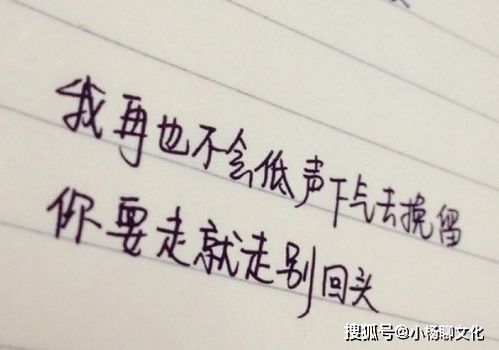 我再也不会低声下气去挽留
你要走就走别回头
搜狐号@小杨聊文化